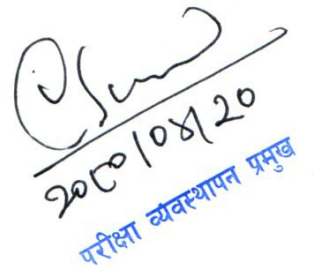 २०८०/०४/२०
परीक्षा व्यवस्थापन प्रमुख